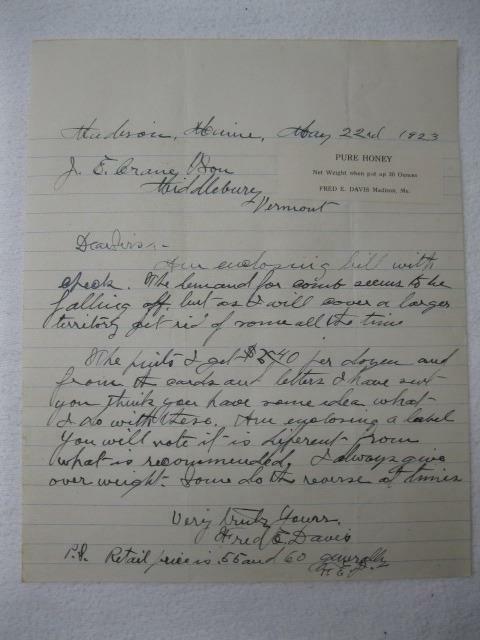 Madison, Maine, May 22nd 1923
J. E. Crane & Son
Middlebury
Vermont
PURE HONEY
Net Weight when put up 16 Ounces
FRED E. DAVIS Madison, Me.
Dear Sirs:-
Am enclosing bill with
check. The demand for comb seems to be
falling off but as I will cover a larger
territory get rid of some all the time
The pints I get $ 5,40 per dozen and
from the cards and letters I have sent
you think you have some idea what
I do with these. Am enclosing a label
You will note it is diferent from
what is recommended, I always give
over weight. Some do the reverse at times
Very truly Yours.
Fred E. Davis
P.S. Retail price is .55 and 60 generally
F.E.D.